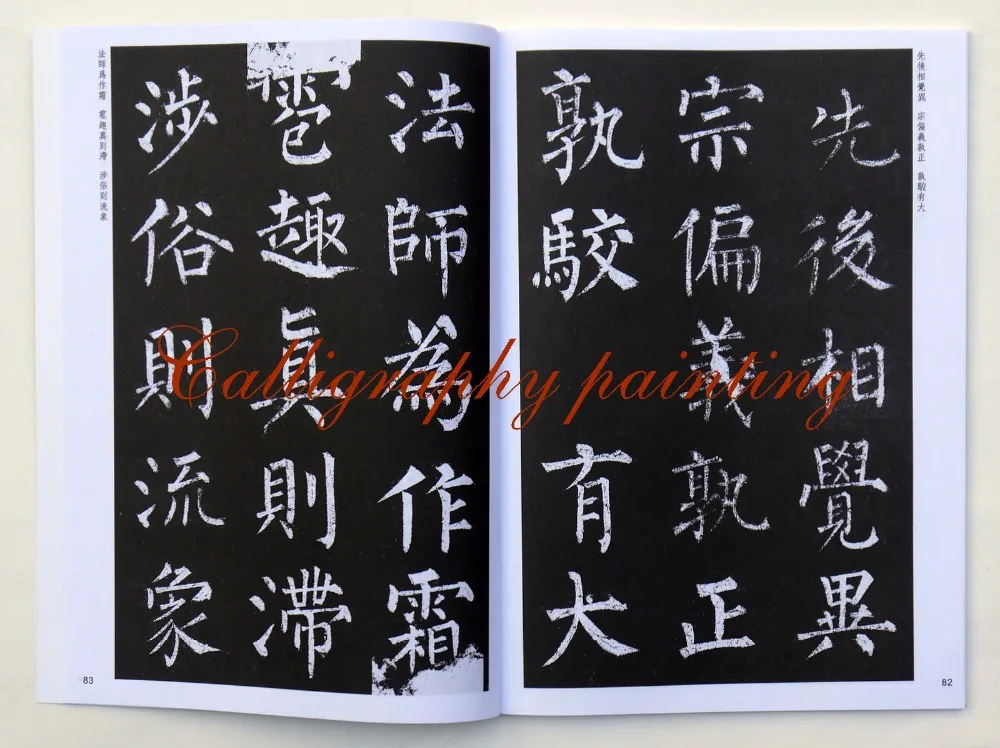 先後相覺異　宗偏義孰正　孰駮有大
先後相覺異
宗偏義孰正
孰駮有大
82
法師為作霜
雹趣真則滯
涉俗則流象
法師爲作霜　雹趣真則滯　涉俗則流象
83
Calligraphy painting